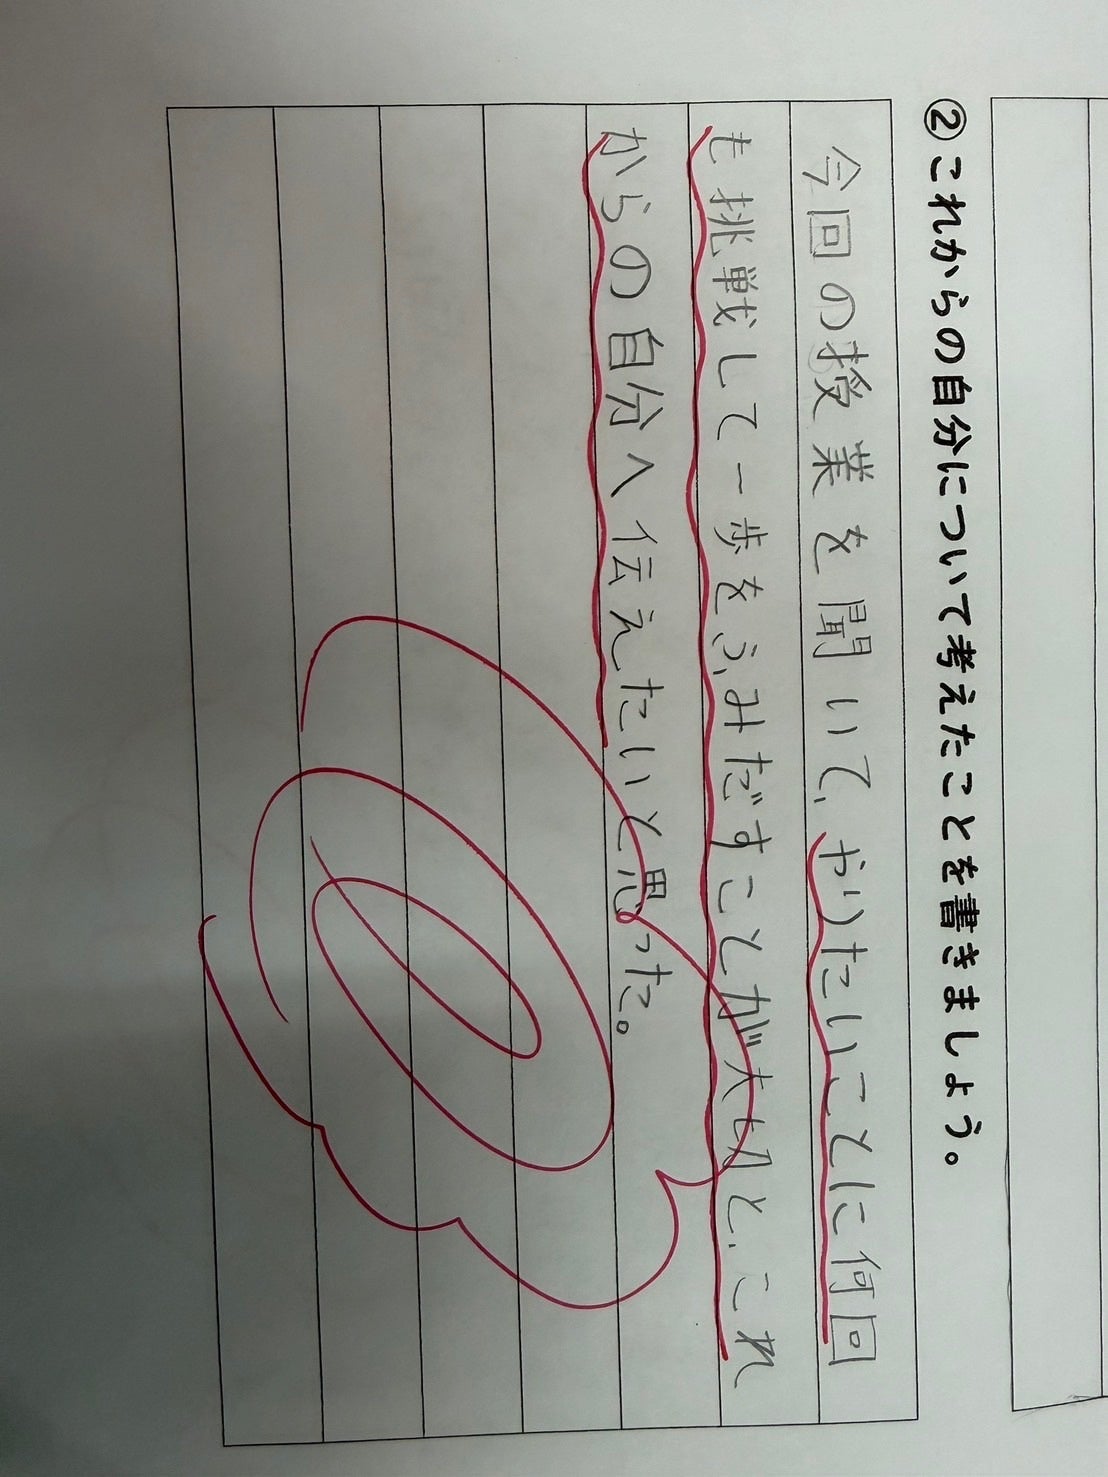 ②これからの自分について考えたことを書きましょう。
今回の授業を聞いて、やりたいことに何回
も挑戦して一歩をふみだすことが大切と、これ
からの自分へ伝えたいと思った。